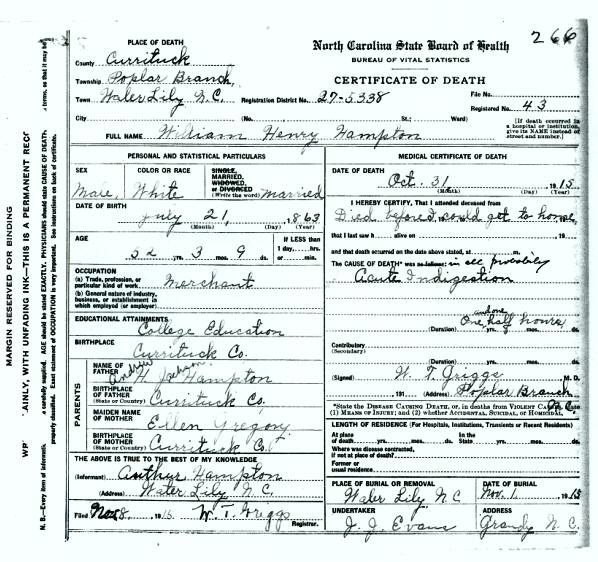 266
PLACE OF DEATH
County Currituck
Township Poplar Branch
Town Water Lily N.C.
North Carolina State Board of Health
BUREAU OF VITAL STATISTICS
CERTIFICATE OF DEATH
Registration District No. 27-5338
File No.
Registered No. 43
City (No. St.; Ward)
[If death occurred in a hospital or institution, give its NAME instead of street and number.]
FULL NAME William Henry Hampton
PERSONAL AND STATISTICAL PARTICULARS
SEX Male
COLOR OR RACE White
SINGLE, MARRIED, WIDOWED, or DIVORCED (Write the word) married
DATE OF BIRTH July 21, 1863
(Month) (Day) (Year)
AGE 52 yrs. 3 mos. 9 ds.
If LESS than 1 day, hrs. or min.
OCCUPATION
(a) Trade, profession, or particular kind of work. Merchant
(b) General nature of industry, business, or establishment in which employed (or employer)
EDUCATIONAL ATTAINMENTS
College Education
BIRTHPLACE
Currituck Co.
PARENTS
NAME OF FATHER Andrew Jackson H. Hampton
BIRTHPLACE OF FATHER (State or Country) Currituck Co.
MAIDEN NAME OF MOTHER Ellen Gregory
BIRTHPLACE OF MOTHER (State or Country) Currituck Co.
THE ABOVE IS TRUE TO THE BEST OF MY KNOWLEDGE
(Informant) Arthur Hampton
(Address) Water Lily N.C.
Filed Nov 8, 1915. W. T. Griggs
Registrar.
MEDICAL CERTIFICATE OF DEATH
DATE OF DEATH
Oct. 31 1915
(Month) (Day) (Year)
I HEREBY CERTIFY, That I attended deceased from
Died before I could get to house,
that I last saw h alive on 19
and that death occurred on the date above stated, at m.
The CAUSE OF DEATH* was as follows: in all probability
Acute Indigestion
One and one half hours,
(Duration) yrs. mos. ds.
Contributory
(Secondary)
(Duration) yrs. mos. ds.
(Signed) W. T. Griggs M. D.
191 (Address) Poplar Branch N.C.
*State the DISEASE CAUSING DEATH, or, in deaths from VIOLENT CAUSES, state (1) MEANS OF INJURY; and (2) whether ACCIDENTAL, SUICIDAL, or HOMICIDAL.
LENGTH OF RESIDENCE (For Hospitals, Institutions, Transients or Recent Residents)
At place of death. yrs. mos. ds. In the State yrs. mos. ds.
Where was disease contracted, if not at place of death?
Former or usual residence
PLACE OF BURIAL OR REMOVAL
Water Lily N.C
DATE OF BURIAL
Nov. 1 1915
UNDERTAKER
J. J. Evans
ADDRESS
Grandy N.C.
MARGIN RESERVED FOR BINDING
AINLY, WITH UNFADING INK—THIS IS A PERMANENT REC
N. B.—Every item of information carefully supplied. AGE should be stated EXACTLY. PHYSICIANS should state CAUSE OF DEATH terms, so that it may be
properly classified. Exact statement of OCCUPATION is very important. See instructions on back of certificate.